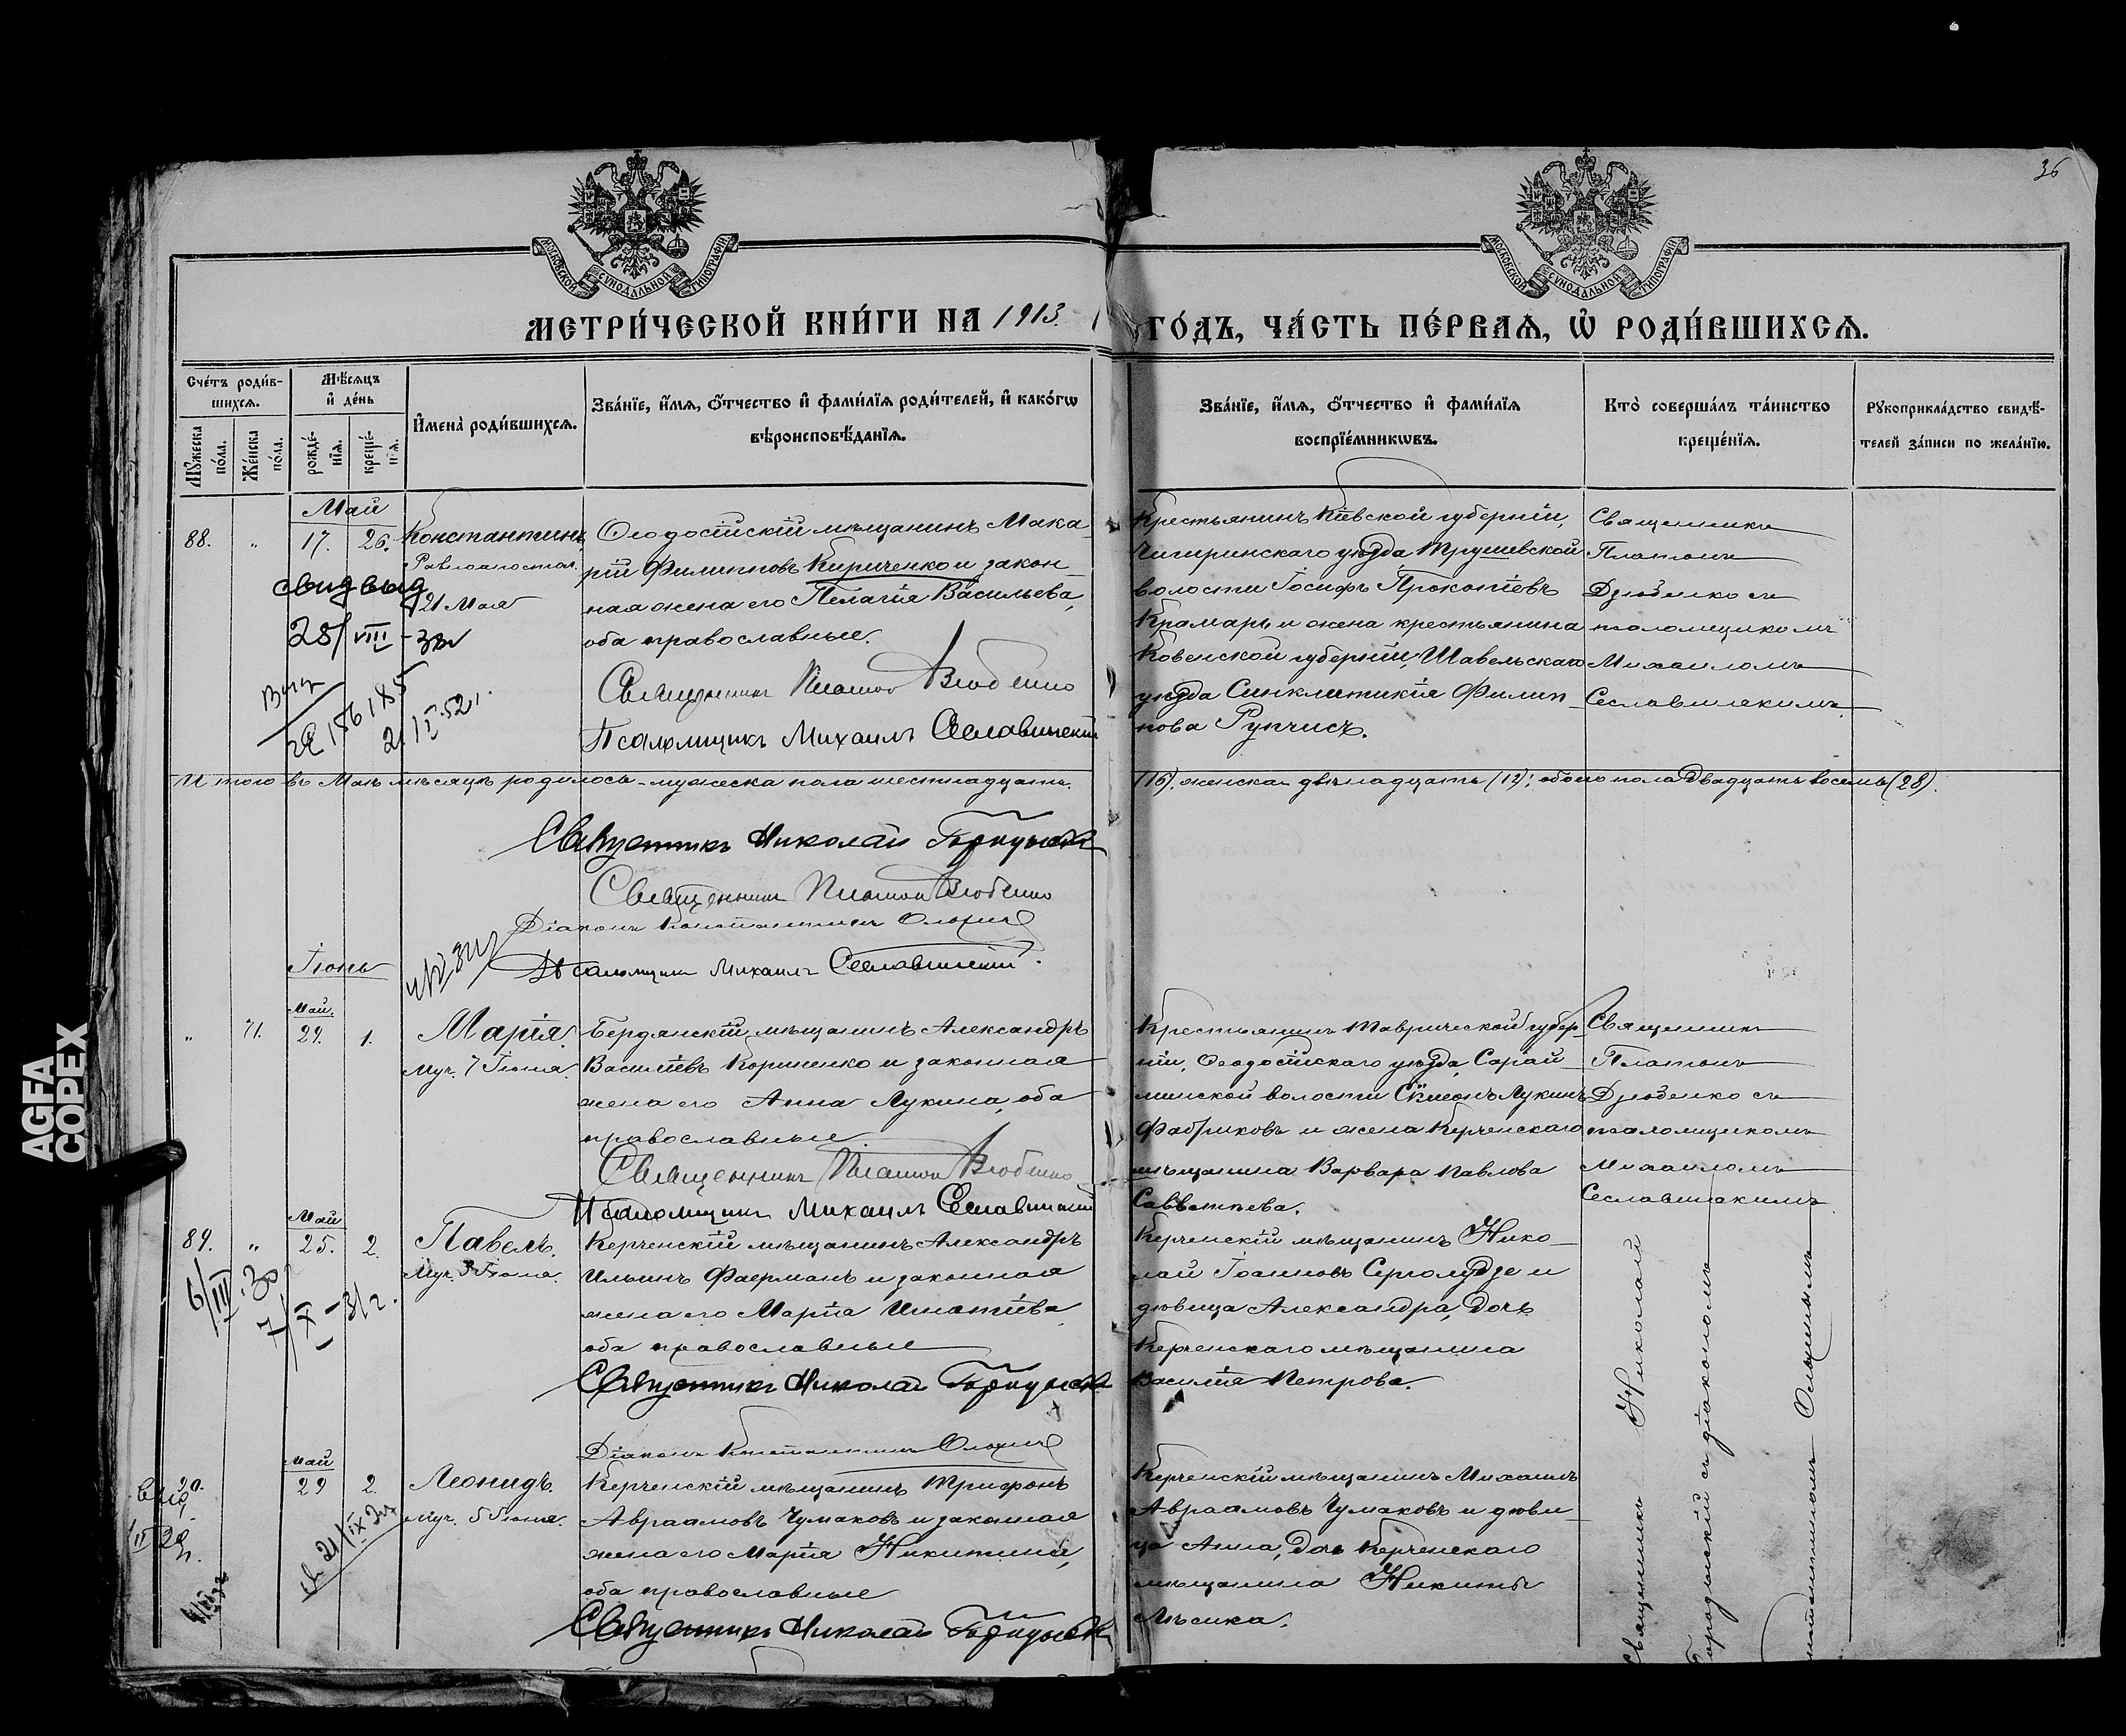 36
МОСКОВСКОЙ СѴНОДАЛЬНОЙ ТИПОГРАФІИ
МОСКОВСКОЙ СѴНОДАЛЬНОЙ ТИПОГРАФІИ
МЕТРИ́ЧЕСКОЙ КНИ́ГИ НА 1913.
ГО́ДЪ, ЧА́СТЬ ПЕ́РВАѦ, Ѡ҆ РОДИ́ВШИХСѦ.
Сче́тъ роди́в-
шихсѧ.
Мꙋ́жеска
по́ла.
Же́нска
по́ла.
Мѣ́сѧцъ
и҆ де́нь
рожде́-
нїѧ.
креще́-
нїѧ.
И҆мена̀ роди́вшихсѧ.
Зва́нїе, и҆́мѧ, ѻ҆́тчество и҆ фами́лїѧ роди́телей, и҆ како́гѡ
вѣроисповѣ́данїѧ.
Зва́нїе, и҆́мѧ, ѻ҆́тчество и҆ фами́лїѧ
воспрїе́мникѡвъ.
Кто̀ соверша́лъ та́инство
креще́нїѧ.
Рꙋкоприкла́дство свидѣ́-
телей за́писи по жела́нїю.
Май
88. „ 17. 26. Константинъ
Равноапостол.
21 Мая
свид выд
28/VIII -
Ѳеодосійскій мѣщанинъ Мака-
рій Филипповъ Кириченко и закон-
ная жена его Пелагія Васильева,
оба православные.
Священникъ Платонъ Дзюбенко
Псаломщикъ Михаилъ Сеславинскій
Крестьянинъ Кіевской губерніи,
Чигиринскаго уѣзда Трушевской
волости Іосифъ Прокопіевъ
Крамаръ и жена крестьянина
Ковенской губерніи, Шавельскаго
уѣзда Синклитикія Филип-
пова Рупчисъ.
Священникъ
Платонъ
Дзюбенко съ
псаломщикомъ
Михаиломъ
Сеславинскимъ
Итого въ Маѣ мѣсяцѣ родилось - мужеска пола шестнадцать.
(16), женска - двѣнадцать (12); обоего пола двадцать восемь (28).
Священникъ Николай
Священникъ Платонъ Дзюбенко
Діаконъ Константинъ
Псаломщикъ Михаилъ Сеславинскій.
Іюнь
Май.
„ 71. 29. 1. Марія.
муч. 7 Іюня.
Бердянскій мѣщанинъ Александръ
Василіевъ Корниенко и законная
жена его Анна Лукина, оба
православные.
Священникъ Платонъ Дзюбенко
Псаломщикъ Михаилъ Сеславинскій
Крестьянинъ Таврической губер-
ніи, Ѳеодосійскаго уѣзда, Сарай-
минской волости Сѵмеонъ Лукинъ
Фабриковъ и жена Керченскаго
мѣщанина Варвара Павлова
Савватѣева.
Священникъ
Платонъ
Дзюбенко съ
псаломщикомъ
Михаиломъ
Сеславинскимъ
Май
89. „ 25. 2. Павелъ.
Муч. 3 Іюня.
6/III. 30
Керченскій мѣщанинъ Александръ
Ильинъ Фаерманъ и законная
жена его Марія Игнатіева,
оба православные
Священникъ Николай
Діаконъ Константинъ
Керченскій мѣщанинъ Нико-
лай Іоанновъ и
дѣвица Александра, дочь
Керченскаго мѣщанина
Василія Петрова.
Май
90. 29 2. Леонидъ.
муч. 5 Іюня.
21/IX
Керченскій мѣщанинъ Трифонъ
Авраамовъ Чумаковъ и законная
жена его Марія Никитина,
оба православные
Священникъ Николай
Керченскій мѣщанинъ Михаилъ
Авраамовъ Чумаковъ и дѣви-
ца Анна, дочь Керченскаго
мѣщанина Никиты
Священникъ Николай
съ діакономъ
AGFA
COPEX